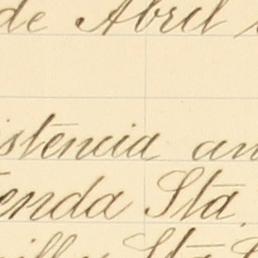 de Abril
istencia an
enda Sta
Sta